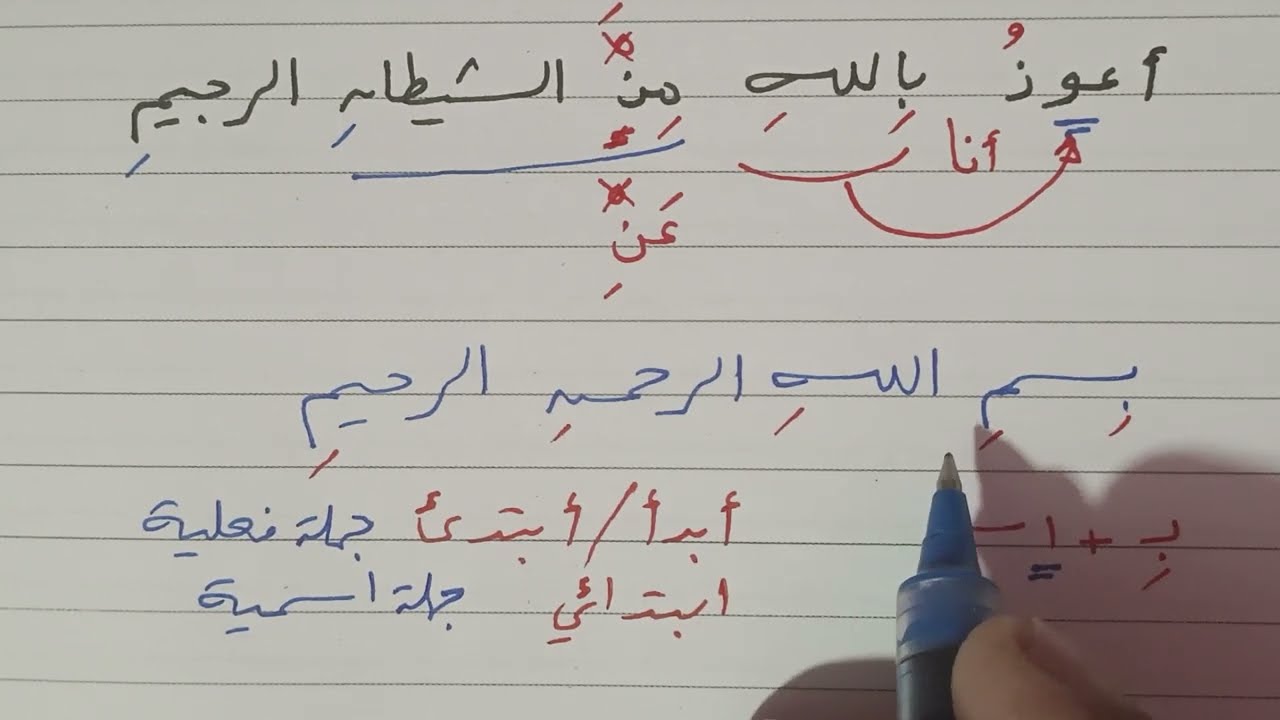 أعوذُ بِاللهِ مِنَ الشيطانِ الرجيمِ
أنا
عَنِ
بِسمِ اللهِ الرحمنِ الرحيمِ
بِ + اس أبدأ / أبتدئ جملة فعلية
ابتدائي جملة اسمية